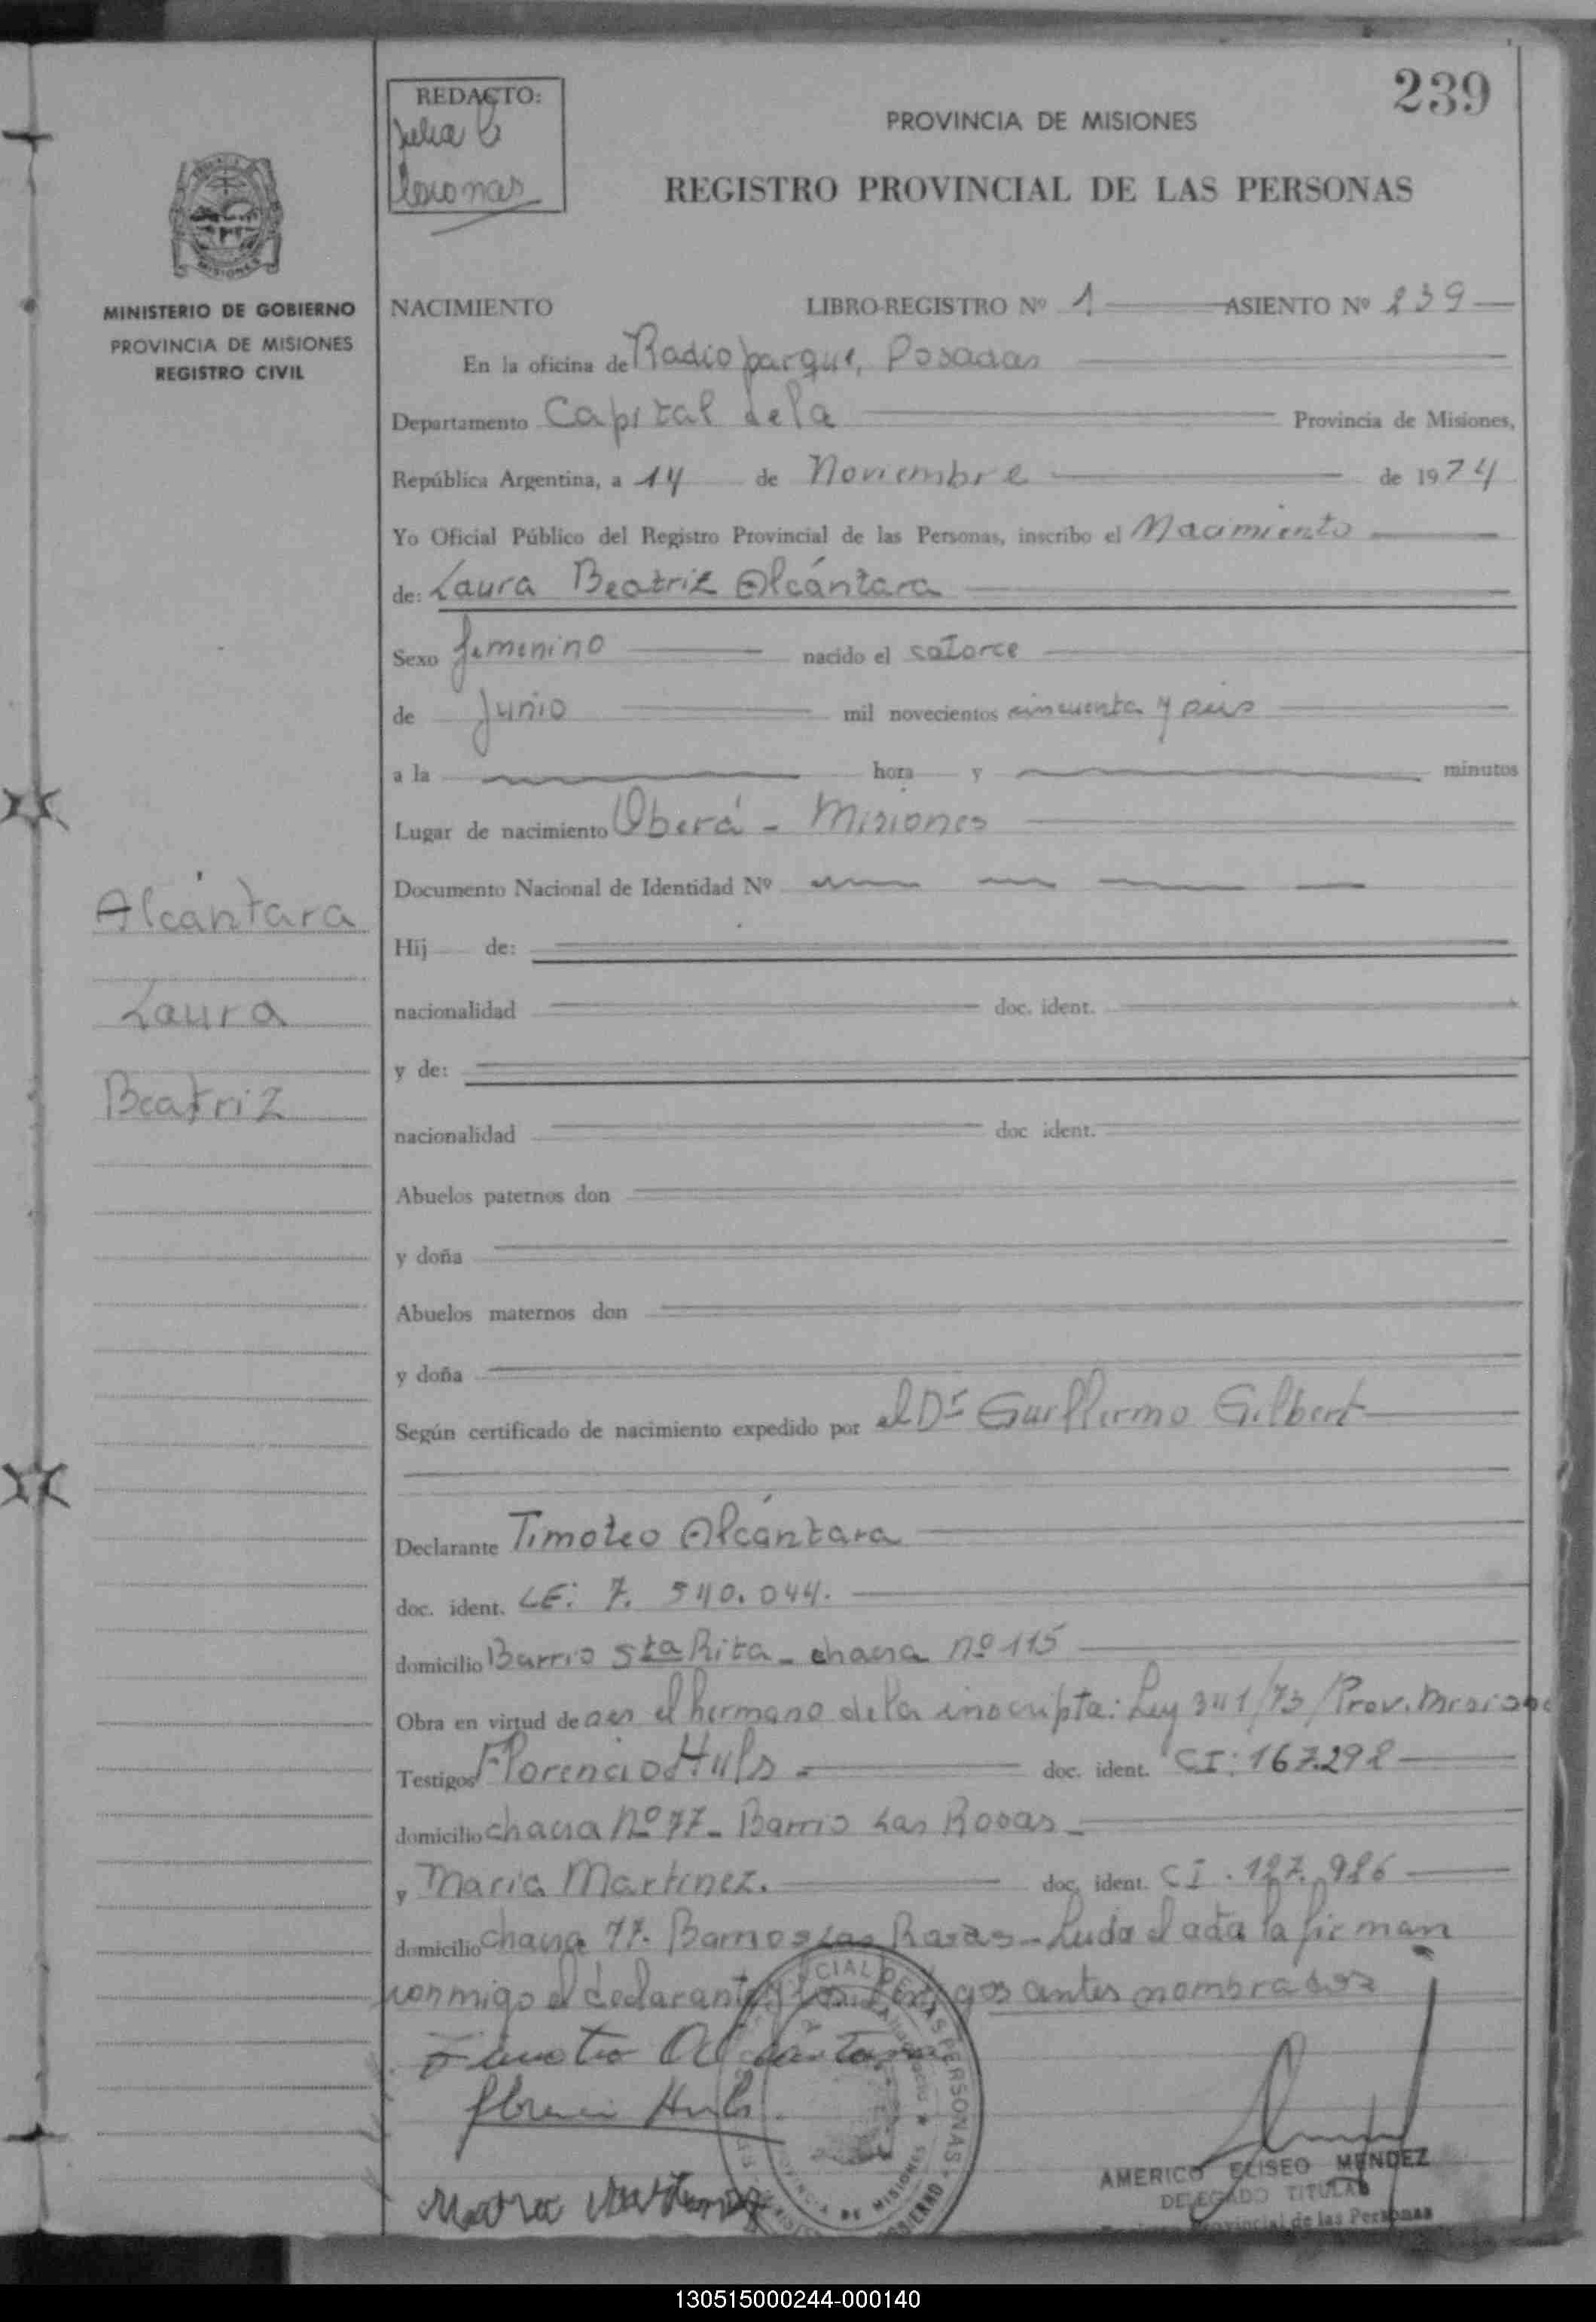 239
REDACTO:
Julia C
PROVINCIA DE MISIONES
REGISTRO PROVINCIAL DE LAS PERSONAS
MISIONES
MINISTERIO DE GOBIERNO
PROVINCIA DE MISIONES
REGISTRO CIVIL
Alcántara
Laura
Beatriz
NACIMIENTO LIBRO-REGISTRO Nº 1 ASIENTO Nº 239
En la oficina de Radio parque, Posadas
Departamento Capital de la Provincia de Misiones,
República Argentina, a 14 de Noviembre de 1974
Yo Oficial Público del Registro Provincial de las Personas, inscribo el Nacimiento
de: Laura Beatriz Alcántara
Sexo femenino nacido el catorce
de Junio mil novecientos cincuenta y seis
a la hora y minutos
Lugar de nacimiento Oberá - Misiones
Documento Nacional de Identidad Nº
Hij de:
nacionalidad doc. ident.
y de:
nacionalidad doc ident.
Abuelos paternos don
y doña
Abuelos maternos don
y doña
Según certificado de nacimiento expedido por el Dr Guillermo Gilbert
Declarante Timoteo Alcántara
doc. ident. LE: 7. 540.044.
domicilio Barrio Sta Rita - chacra nº 115
Obra en virtud de ser el hermano de la inscripta: Ley 341/73/Prov. Misiones
Testigos Florencio Huls doc. ident. CI: 167.292
domicilio chacra Nº 77 - Barrio Las Rosas -
y Maria Martinez. doc. ident. CI . 127.986
domicilio chacra 77. Barrio Las Rosas - Leida el acta la firman
conmigo el declarante y los testigos antes nombrados
Timoteo Alcantara
Florencio Huls
Maria Martinez
AMERICO ELISEO MENDEZ
DELEGADO TITULAR
Provincial de las Personas
130515000244-000140